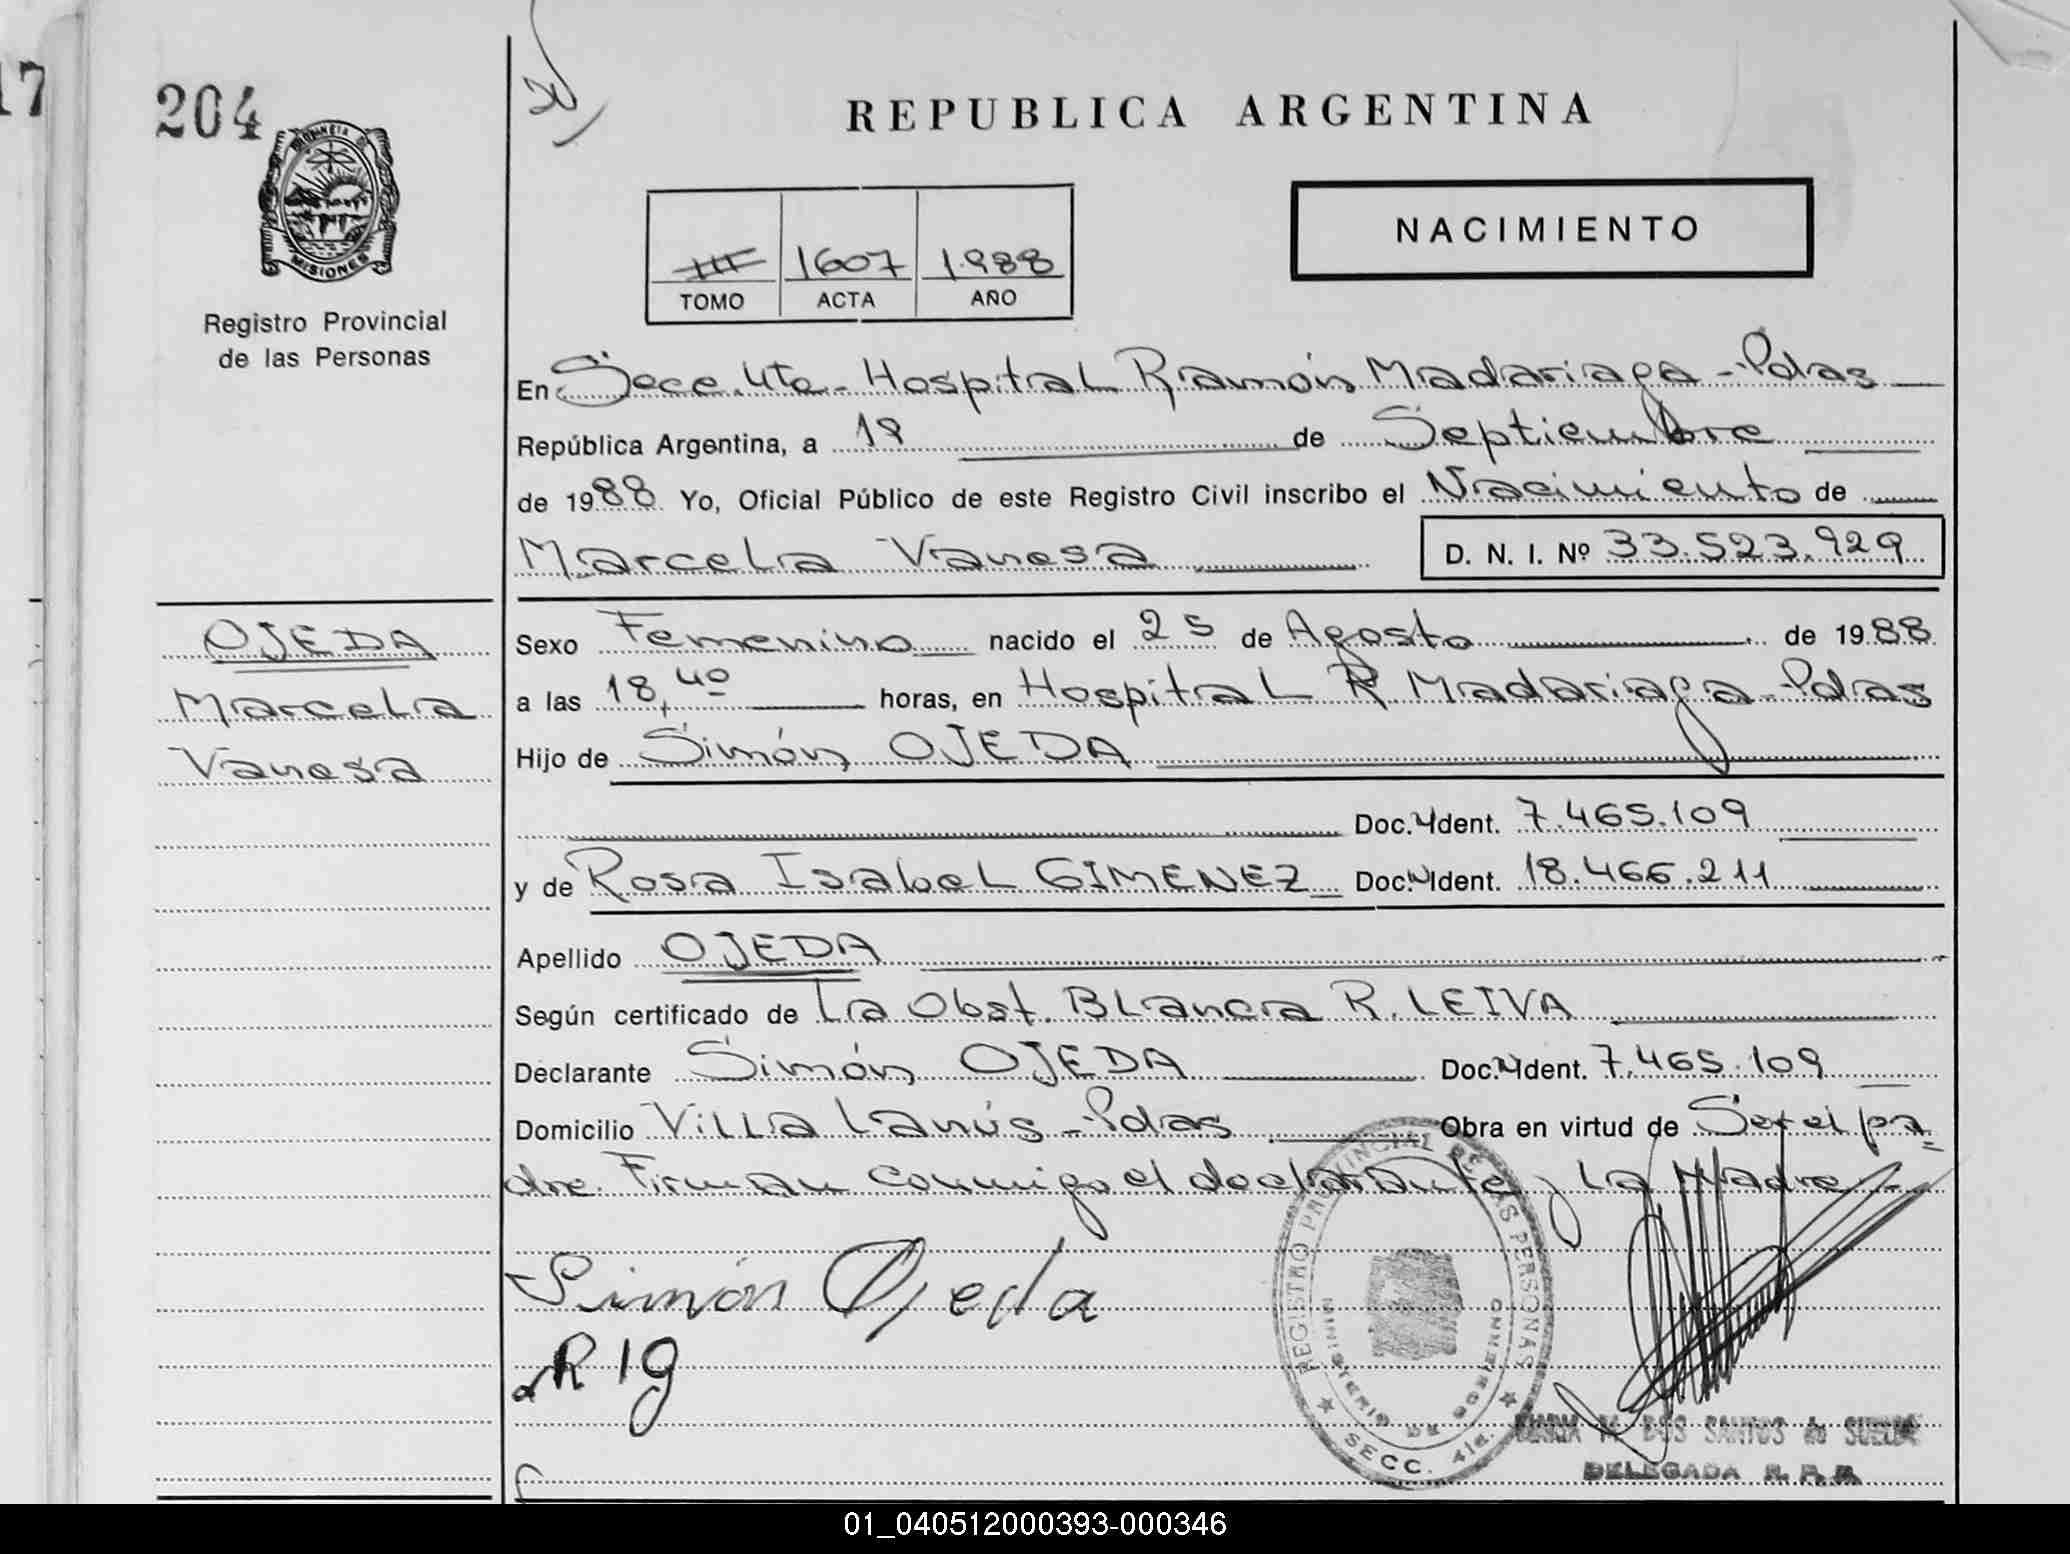 17
204
REPUBLICA ARGENTINA
PROVINCIA DE
MISIONES
NACIMIENTO
III 1607 1.988
TOMO ACTA AÑO
Registro Provincial
de las Personas
En Secc. 4ta. Hospital Ramón Madariaga - Pdas
República Argentina, a 19 de Septiembre
de 1988 Yo, Oficial Público de este Registro Civil inscribo el Nacimiento de
Marcela Vanesa D. N. I. Nº 33.523.929
OJEDA
Marcela
Vanesa
Sexo Femenino nacido el 25 de Agosto de 1988
a las 18,40 horas, en Hospital R Madariaga - Pdas
Hijo de Simón OJEDA
Doc. Ident. 7.465.109
y de Rosa Isabel GIMENEZ Doc. Ident. 18.466.211
Apellido OJEDA
Según certificado de La Obst. Blanca R. LEIVA
Declarante Simón OJEDA Doc. Ident. 7.465.109
Domicilio Villa Lanús - Pdas Obra en virtud de Ser el pa=
dre. Firman conmigo el declarante y La Madre -
Simón Ojeda
R I g
REGISTRO PROVINCIAL DE LAS PERSONAS
MINISTERIO DE GOBIERNO
SECC. 4ta.
M. DOS SANTOS de
DELEGADA R. P. P.
01_040512000393-000346